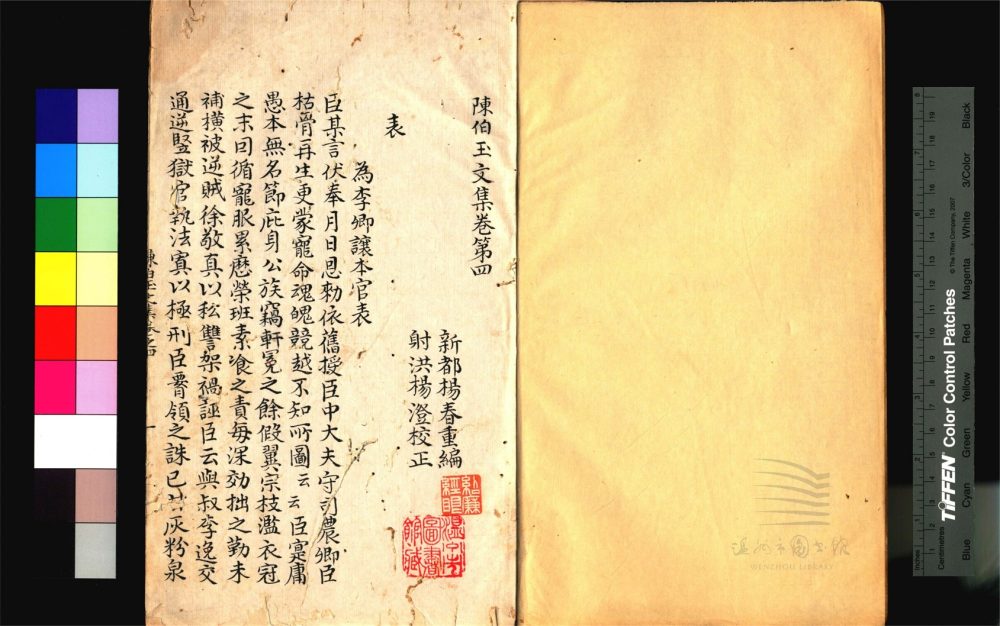 陳伯玉文集卷第四
新都楊春重編
射洪楊澄校正
表
為李卿讓本官表
臣某言伏奉月日恩勑依舊授臣中大夫守司農卿臣
枯骨再生更蒙寵命魂魄競越不知所圖云云臣寔庸
愚本無名節庇身公族竊軒冕之餘假翼宗枝濫衣冠
之末因循寵服累歷榮班素飡之責每深効拙之勤未
補橫被逆賊徐敬真以私讐架禍誣臣云與叔李逸交
通逆豎獄官執法寘以極刑臣脣領之誅已甘灰粉泉
陳伯玉文集卷之四
一
温州市圖書館藏
温州市图书馆
WENZHOU LIBRARY
Inches
Centimetres
TIFFEN Color Control Patches
© The Tiffen Company, 2007
Blue
Cyan
Green
Yellow
Red
Magenta
White
3/Color
Black